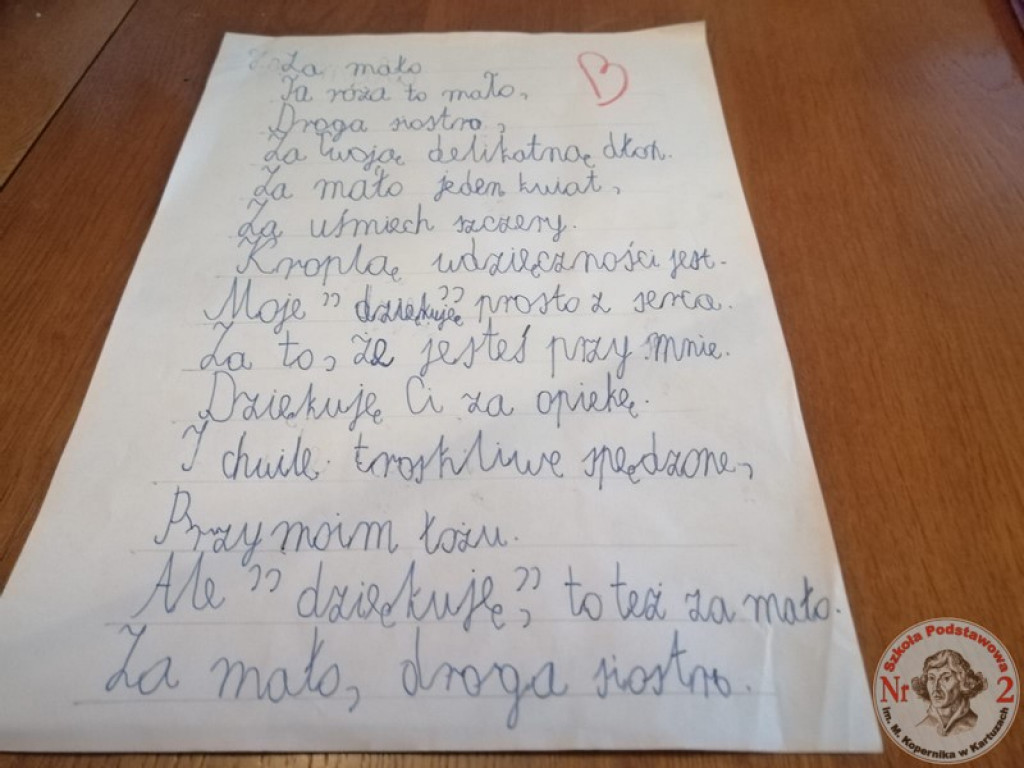 Za mało
Ta róża to mało,
Droga siostro,
Za twoją delikatną dłoń.
Za mało jeden kwiat,
Za uśmiech szczery.
Kroplą wdzięczności jest.
Moje " dziękuję" prosto z serca.
Za to, że jesteś przy mnie.
Dziękuję Ci za opiekę.
I chwile troskliwe spędzone,
Przy moim łożu.
Ale " dziękuję," to też za mało.
Za mało, droga siostro.
Szkoła Podstawowa
Nr 2
im. M. Kopernika w Kartuzach